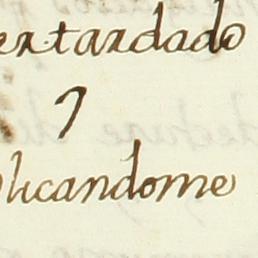 ertardado
y
licandome